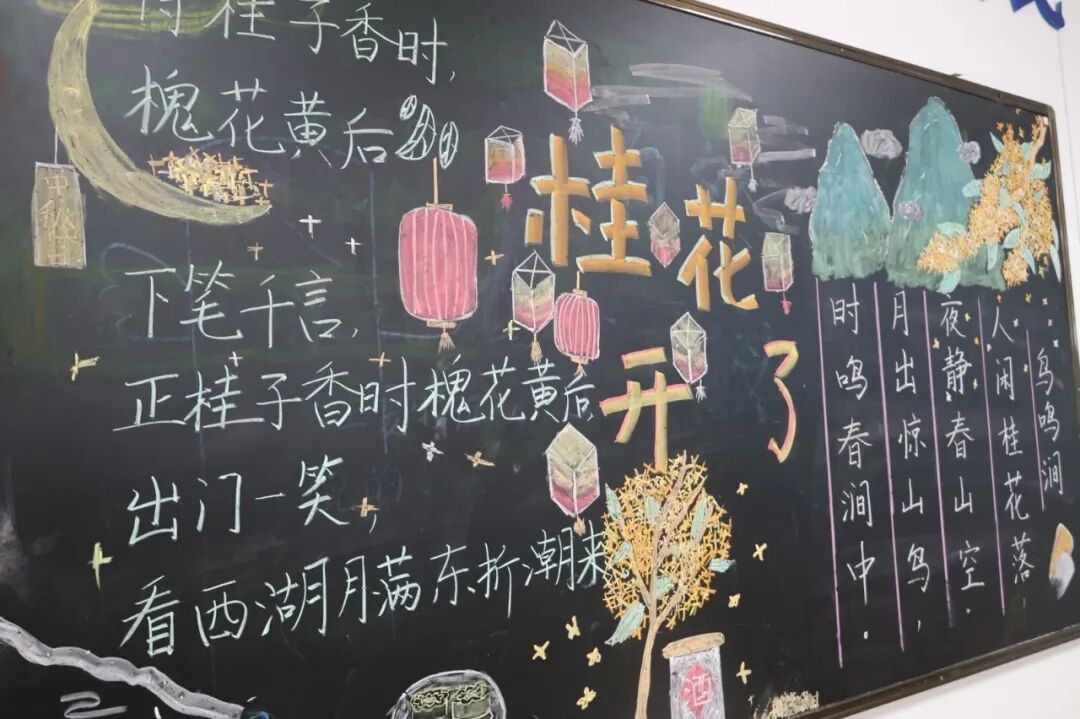 桂子香时,
槐花黄后
中秋
下笔千言,
正桂子香时槐花黄后,
出门一笑,
看西湖月满东折潮来
桂花
开了
鸟鸣涧
人闲桂花落,
夜静春山空.
月出惊山鸟,
时鸣春涧中.
酒